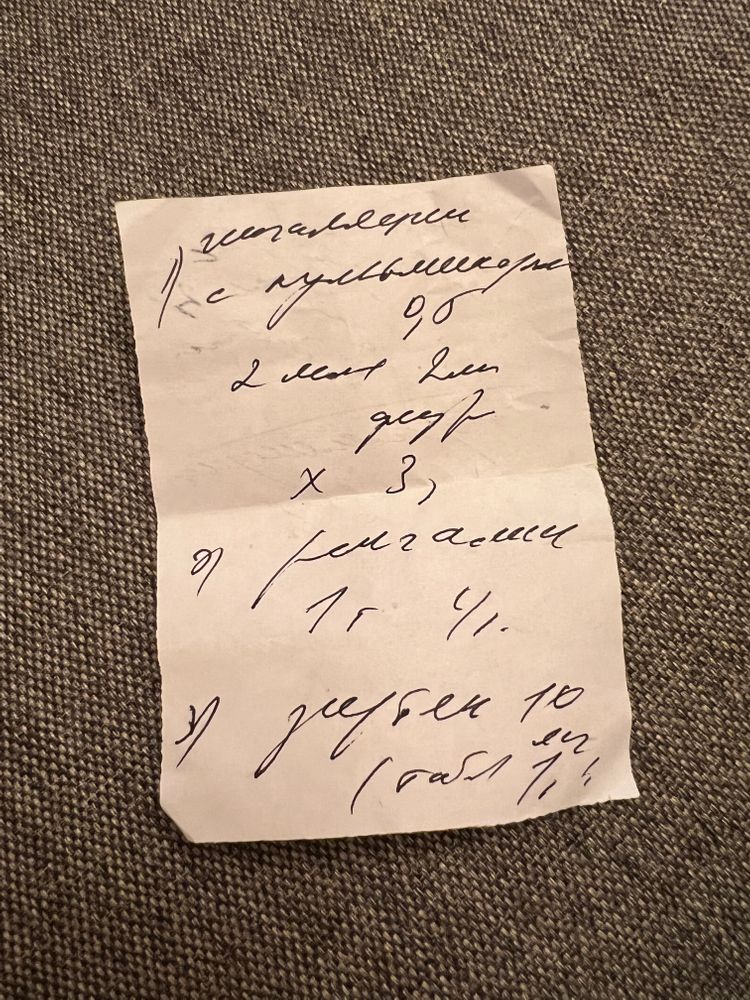 1) ингаляции
с пульмикорт
0,5
2 мл + 2 мл
физ р
х 3,
2) ренгалин
1т
3) зиртек 10
мг
(табл 1